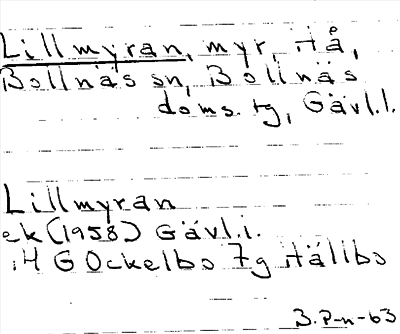 Lillmyran, myr, i Å,
Bollnäs sn, Bollnäs
doms. tg, Gävl.l.
Lillmyran
ek (1958) Gävl.l.
14 G Ockelbo 7g
B. P-n-63